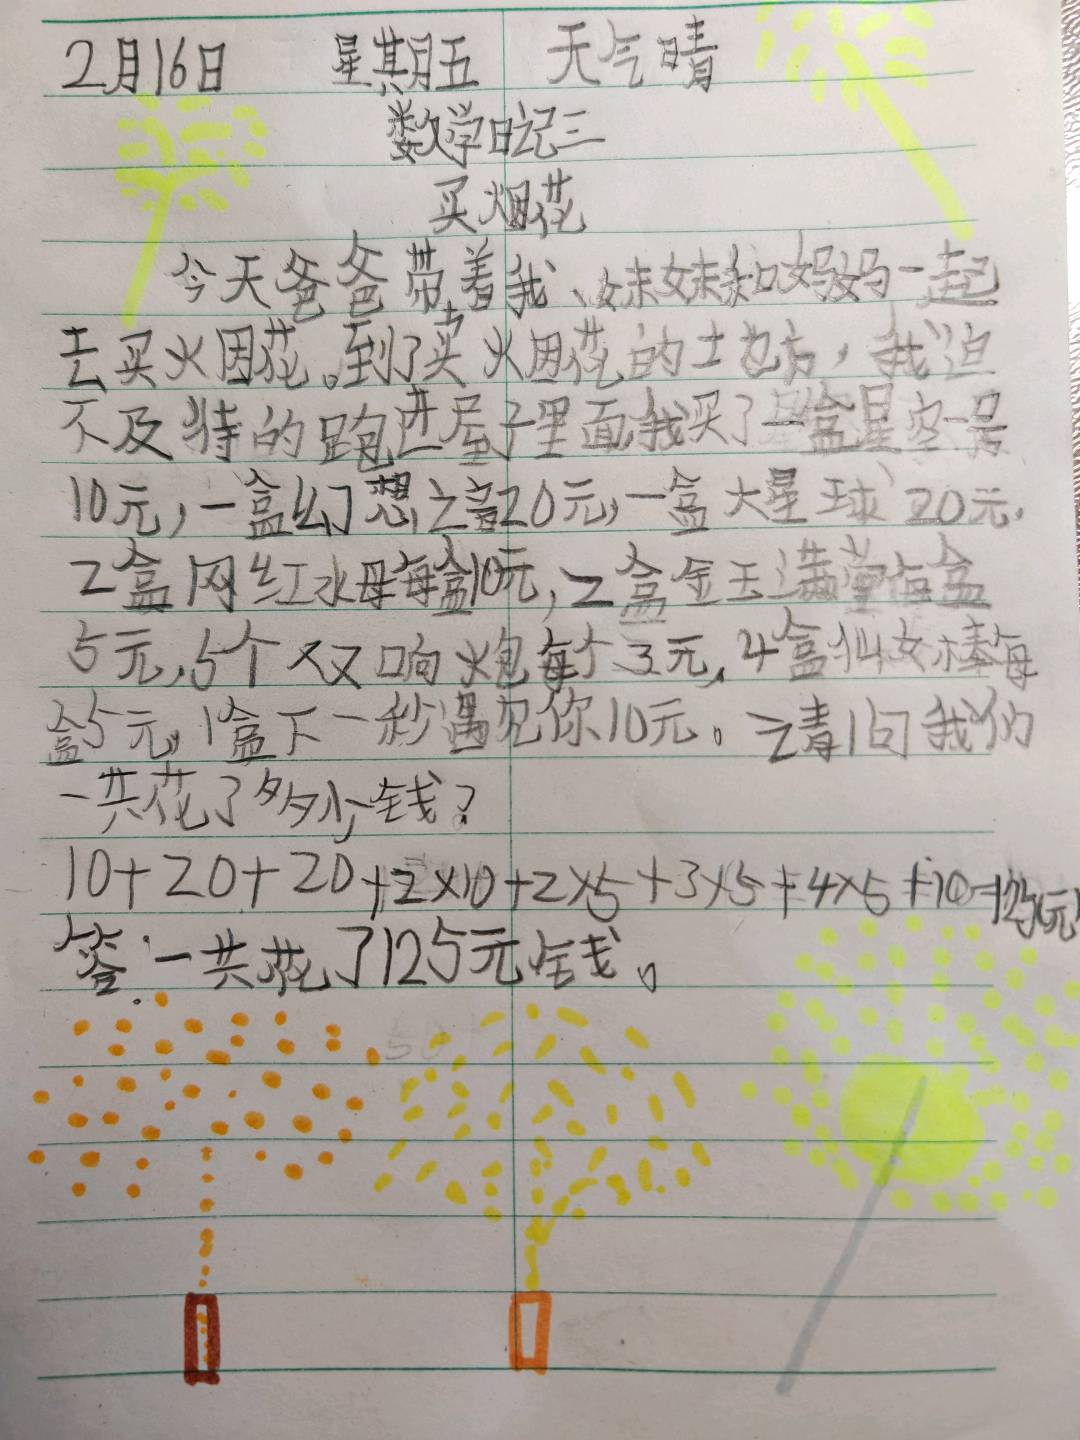 2月16日 星期五 天气晴
数学日记三
买烟花
今天爸爸带着我、妹妹和妈妈一起
去买烟花。到了卖烟花的地方，我迫
不及待的跑进屋子里面我买了一盒星空一号
10元，一盒幻想之音20元，一盒大星球20元，
2盒网红水母每盒10元，2盒金玉满堂每盒
5元，5个双响炮每个3元，4盒仙女棒每
盒5元，1盒下一秒遇见你10元。请问我们
一共花了多少钱？
10+20+20+2×10+2×5+3×5+4×5+10=125(元)
答：一共花了125元钱。
50